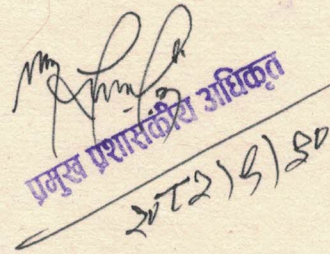 प्रमुख प्रशासकीय अधिकृत
२०८२।९।३०